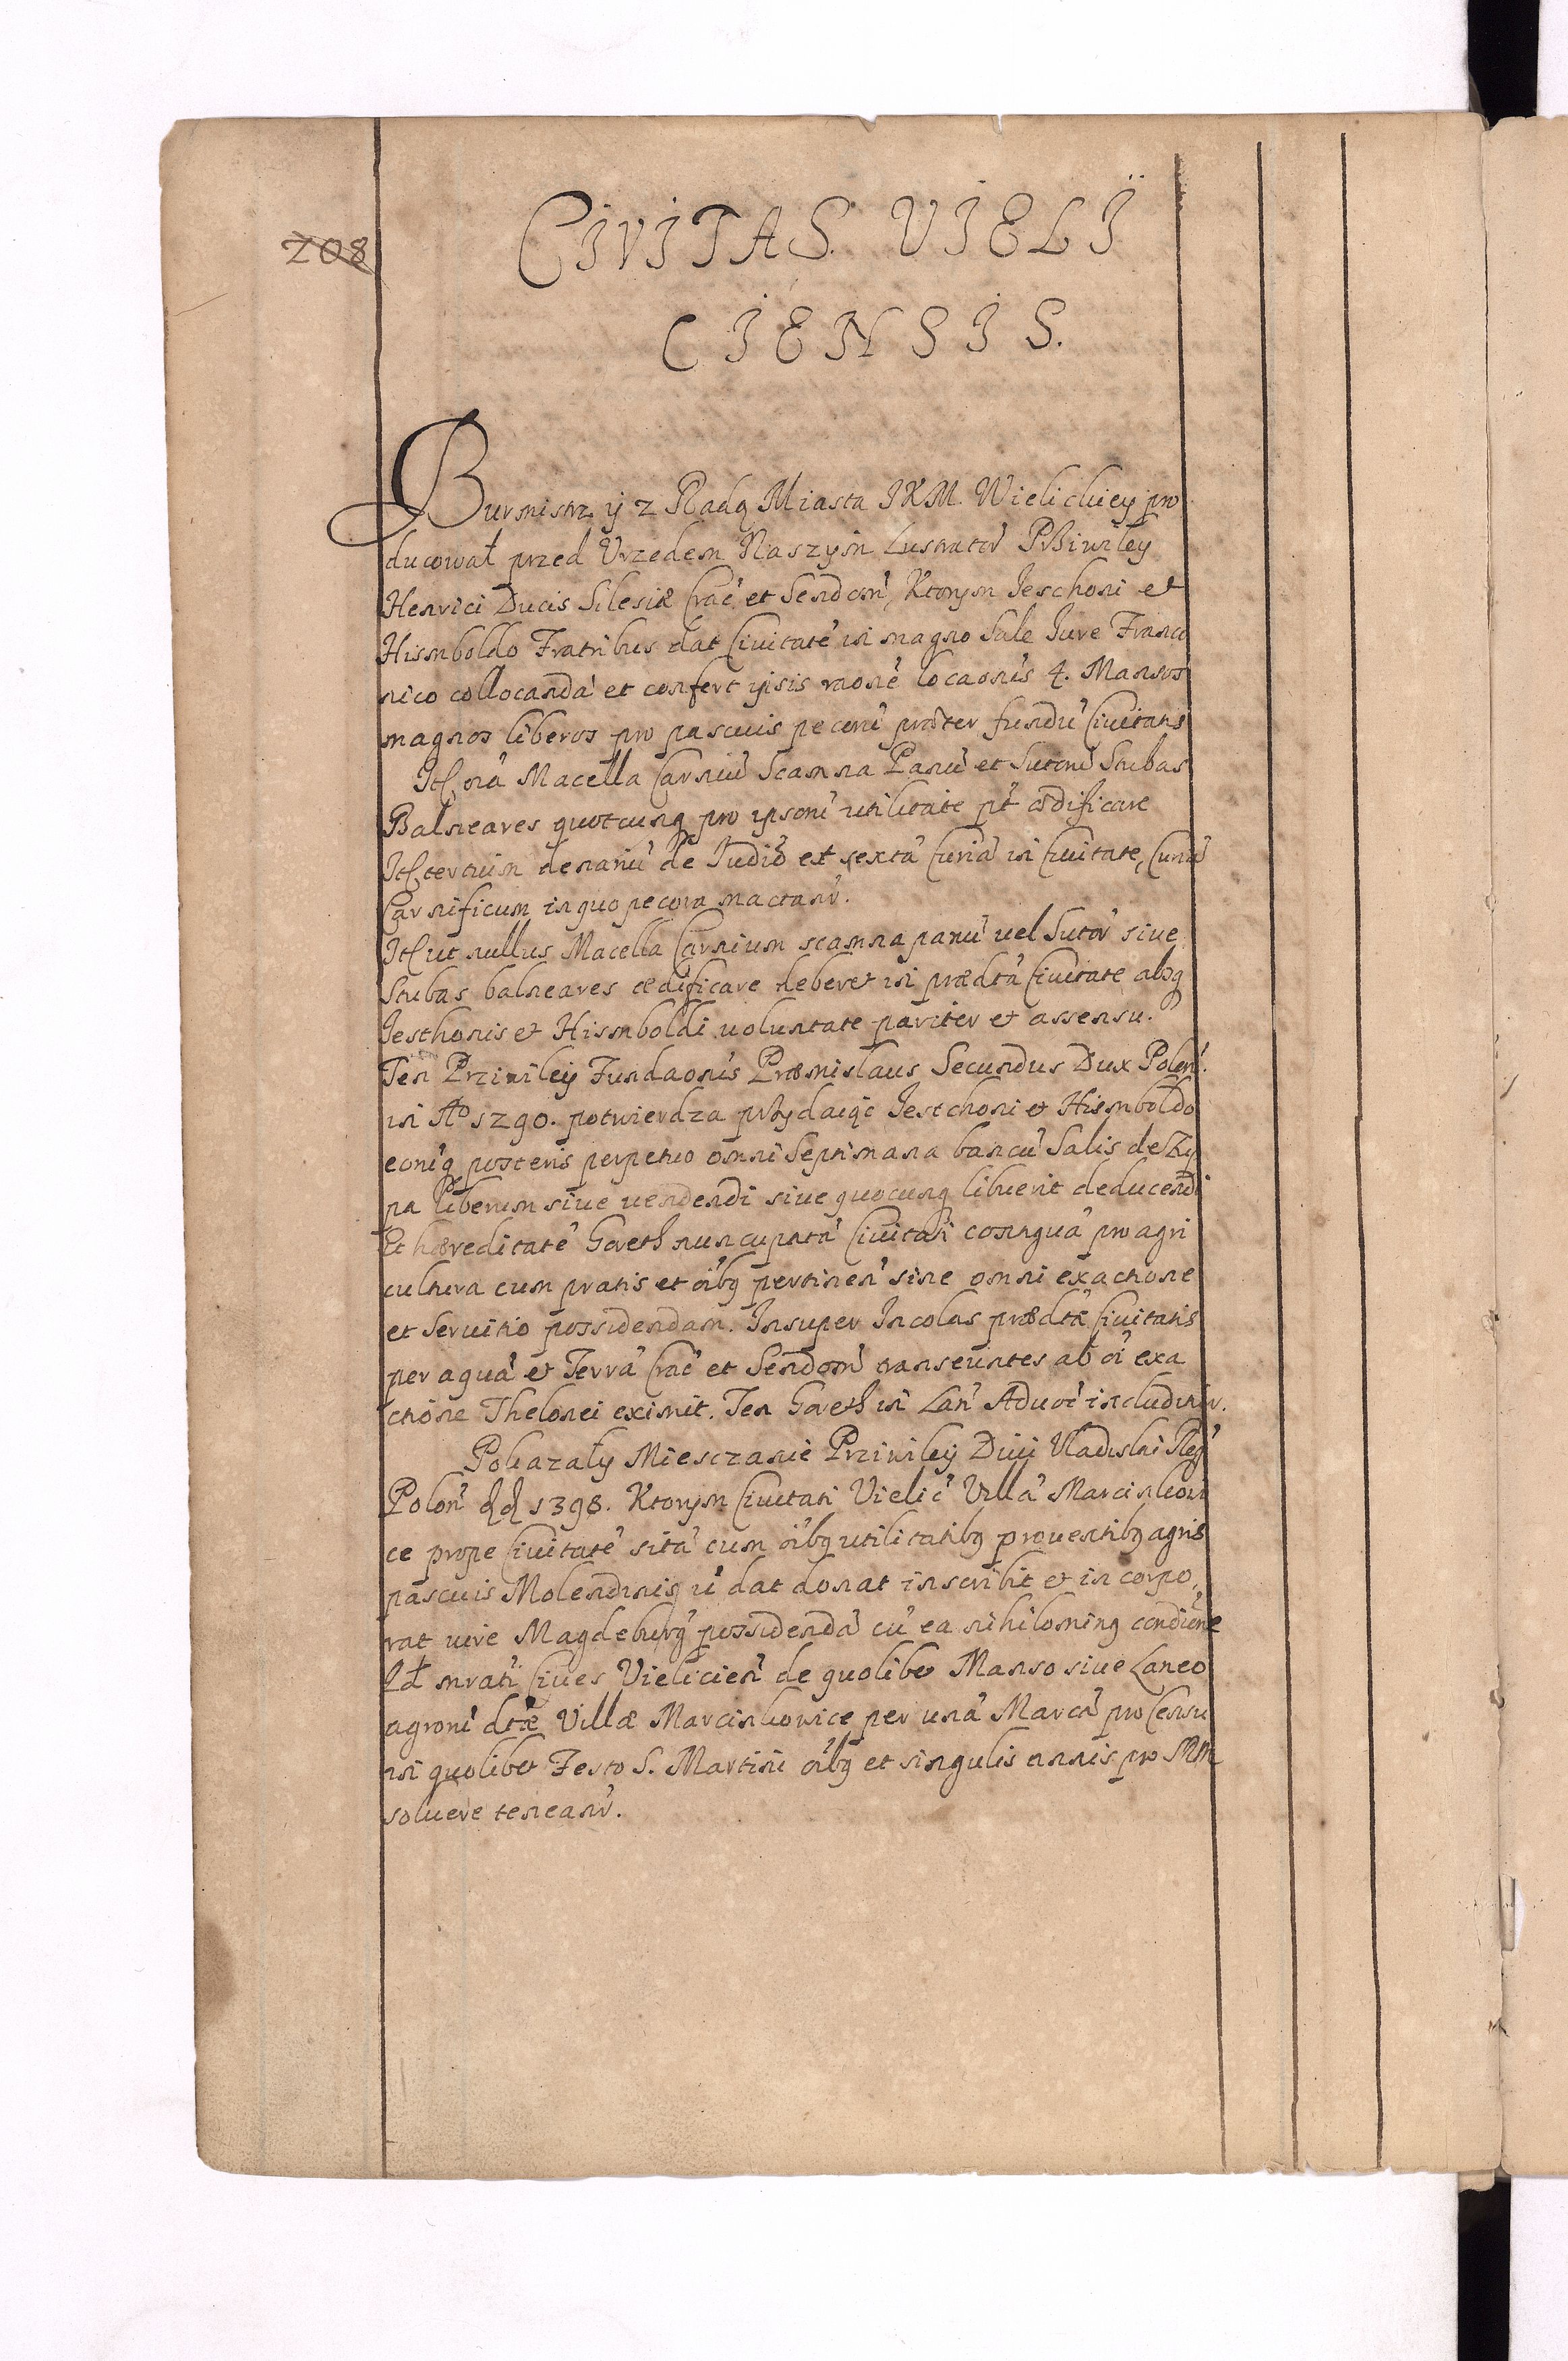 208
CIVITAS VIELI
CIENSIS.
Burmistrz ÿ z Radą Miasta JKM. Wielickiey pro
ducował przed Vrzedem Naszym Lustrator̃ Prziwiley
Henrici Ducis Silesiæ Crac̃ et Sendom̃, Ktorym Jeschoni et
Hismboldo Fratribus dat Ciuitatẽ in magno Sale Iure Franco
nico collocandã et confert ipsis raonẽ locaonis 4. Mansos
magnos liberos pro pascuis pecorũ præter fundũ Ciuitatis
Itẽ oĩa Macella Carniũ Scamna Panũ et Sutorũ Stubas
Balneares quotcunq pro ipsorũ utilitate pt̃ ædificare
Itẽ tertium denariũ de Iudiõ et sextã Curiã in Ciuitate, Curiã
Carnificum in quo pecora mactanr̃.
Itẽ ut nullus Macella Carnium scamna panũ uel Sutor̃ siue
Stubas balneares ædificare deberet in prædtã Ciuitate absq
Jesthonis et Hismboldi uoluntate pariter et assensu.
Ten Prziwiley Fundaonis Præmislaus Secundus Dux Polon̄.
in Aº 1290. potwierdza przydaiąc Jestchoni et Hismboldo
eorũq posteris perpetuo omni Septimana bancũ Salis de Zup
pa liberum siue uendendi siue quocunq libuerit deducendi
Et hæreditatẽ Goreth nuncupatã Ciuitati contiguã pro agri
cultura cum pratis et oĩbq pertinen̄ sine omni exactione
et Seruitio possidendam. Insuper Incolas prædtæ Ciuitatis
per aquã et Terrã Crac̃ et Sendom̃ transeuntes ab oĩ exa
ctione Thelonei eximit. Ten Goreth in Lan̄ Aduoc̃ includitur.
Pokazały Miesczanie Prziwiley Diui Vladislai Reg̃
Polon̄ dd 1398. Ktorym Ciuitati Vielic̃ Villã Marcinkowi
ce prope Ciuitatẽ sitã cum oĩbq utilitatibq prouentibq agris
pascuis Molendinisq ii dat donat inscribit et incorpo,
rat iure Magdeburg̃ possidendã cũ ea nihilominq condiõne
Qd mrati Ciues Vielicien̄ de quolibet Manso siue Laneo
agrorũ dtæ Villæ Marcinkowice per unã Marcã pro Censu
in quolibet Festo S. Martini oĩbq et singulis annis pro
soluere teneanr̃.